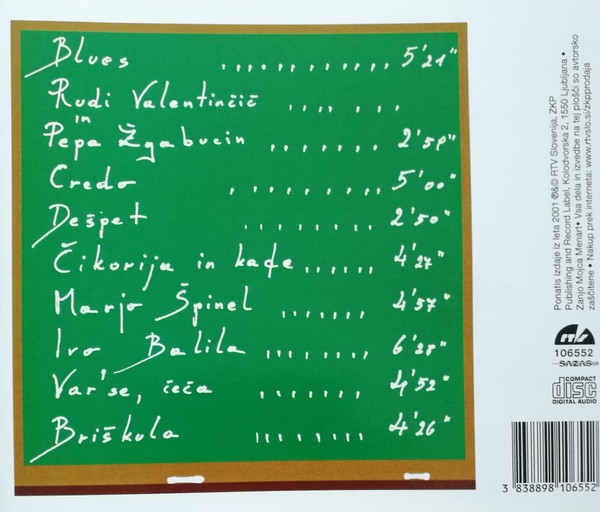 Blues ............ 5'21"
Rudi Valentinčič .... ...
in
Pepa Žgabucin ....... 2'58"
Credo ......... 5'00"
Dešpet ....... 2'50"
Čikorija in kafe ...... 4'27"
Marjo Špinel ....... 4'57"
Ivo Balila ....... 6'28"
Var'se, čeča ....... 4'52"
Briškula ....... 4'26"
Ponatis izdaje iz leta 2001 ℗&© RTV Slovenija, ZKP
Publishing and Record Label, Kolodvorska 2, 1550 Ljubljana •
Zanjo Mojca Menart• Vsa dela in izvedbe na tej plošči so avtorsko
zaščitene • Nakup prek interneta: www.rtvslo.si/zkpprodaja
106552
SAZAS
COMPACT
disc
DIGITAL AUDIO
3 838898 106552